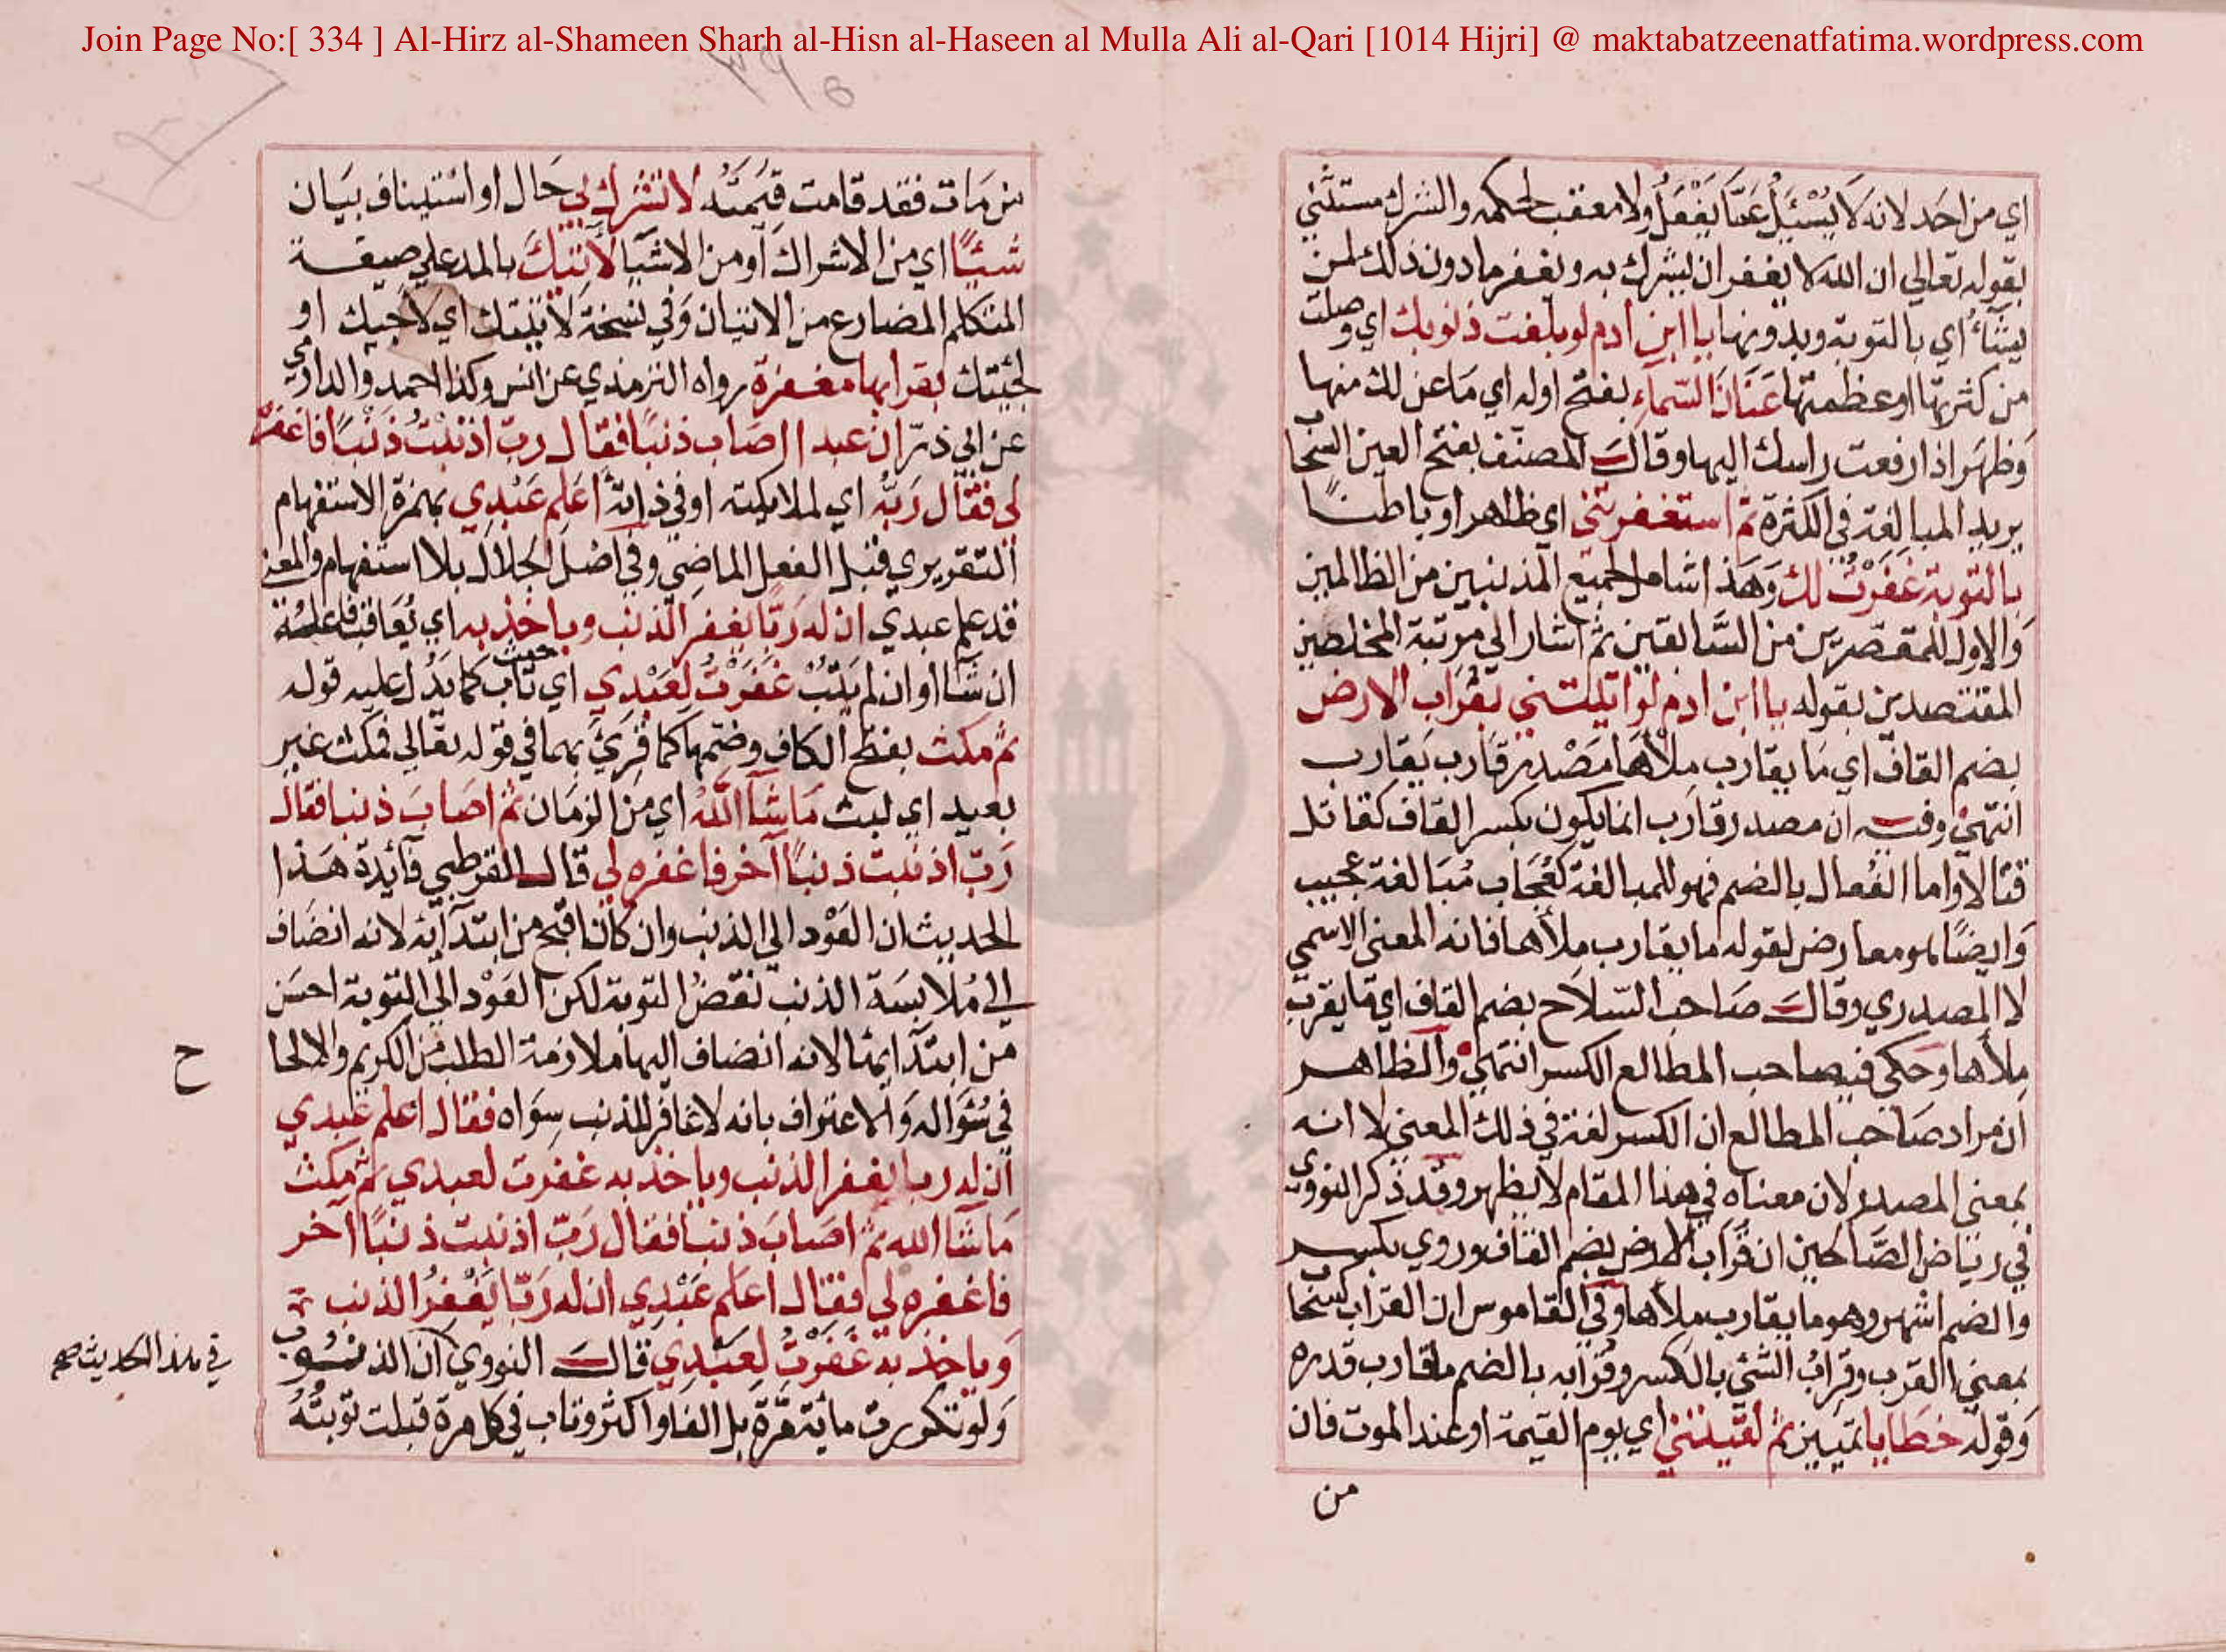 Join Page No:[ 334 ] Al-Hirz al-Shameen Sharh al-Hisn al-Haseen al Mulla Ali al-Qari [1014 Hijri] @ maktabatzeenatfatima.wordpress.com
اي من احد لانه لا يُسْئَلُ عَمَّا يَفْعَلُ ولا معقب لحكمه والشرك مستثني
بقوله تعالي ان الله لا يغفر ان يشرك به ويغفر ما دون ذلك لمن
يشاءُ اي بالتوبة وبدونها يا ابن ادم لو بلغت ذنوبك اي وصلت
من كثرتها او عظمتها عَنَانَ السّماءِ بفتح اوله اي مَا عن لك منها
وَظهَر اذا رفعت راسك اليها وقالَ المصنّف بفتح العين السحاب
يريد المبالغة في الكثرة ثمّ استغفرتني اي ظاهرا وباطنًا
بالتوبة غَفَرْتُ لك وَهَذا شامل لجميع المذنبين من الظالمين
وَالاول للمقصّرين من السَّابقين ثم اشار الي مرتبة المخلصين
المقتصدين بقوله يا ابن ادم لو اتيتني بقُرَاب الارض
بضم القاف اي مَا يقارب مِلْأَهَا مَصْدر قَارب يُقارب
انتهي وفيه ان مصدر قارَب انما يكون بكسر القاف كقاتل
قتالا واما الفُعال بالضم فهو للمبالغة كعُجَاب مُبَالغة عجيب
وَايضًا هو معارض لقوله ما يقارب مِلأها فانه المعني الاسمي
لا المصدري وقالَ صَاحب السّلاح بضم القاف اي ما يقرب
مِلأها وحَكي فيه صاحب المطالع الكسر انتهي وَالظاهر
ان مراد صَاحب المطالع ان الكسر لغة في ذلك المعني لا انه
بمعني المصدر لان معناه في هذا المقام لا يظهر وقد ذكر النووي
في رياض الصَّالحين ان قُرَاب الارض بضم القاف وروي بكسر
والضم اشهر وهو ما يقارب مِلأها وفي القاموس ان القراب كسحاب
بمعني القرب وقِرابُ الشئ بالكسر وقُرابه بالضم ما قارب قدره
وَقوله خطَايا تمييز ثم لقيتني اي يوم القيمة او عند الموت فان
من
من مَات فقد قامت قيمَتُه لا تشرك بي حَال او استيناف بيَان
شيئًا اي من الاشراك او من الاشيَا لأتيتك بالمد علي صيغة
المتكلم المضارع من الاتيان وَفي نسخة لأتيتك اي لاجيك او
لجئتك بقرابها مغفرة رواه الترمذي عن انس وكذا احمد والدارمي
عن ابي ذرّ ان عبدا اصَاب ذنبًا فقال ربّ اذنبتُ ذَنْبًا فاغفره
لي فقَال رَبُّه اي لملايكته او في ذاته اَعَلِم عَبْدِي بهمزة الاستفهام
التقريري قبل الفعل الماضي وفي اصْل الجلال بلا استفهام والمعني
قد علم عبدي ان له رَبًّا يغفر الذنب وياخذ به اي يُعَاقب فاعله
ان شَآ او ان لم يتُبْ غَفَرْتُ لِعَبْدِي اي حيث تاب كما يَدُل عليه قوله
ثم مكث بفتح الكاف وضمها كما قُرِيَ بهما في قوله تعَالي فمكث غير
بعيد اي لبث مَا شَآ اللهُ اي من الزمَان ثم اصَابَ ذنبا فقال
رَبّ اذنبت ذنبًا آخر فاغفره لي قال القرطبي فَآئدة هَذا
الحديث ان العَوْد الي الذنب وان كان اقبح من ابتدآئه لانه انضَاف
الي مُلابسَة الذنب نقضُ التوبة لكن العَوْد الي التوبة احسَن
من ابتدآئها لانه انضاف اليها ملازمة الطلب من الكريم والالحا
ح
في سُؤاله وَالاعتراف بانه لا غافر للذنب سِوَاه فقال اعلم عَبدي
ان له ربا يغفر الذنب وياخذ به غفرت لعبدي ثم مكث
مَا شآ الله ثم اصَابَ ذنبا فقال رَبّ اذنبت ذنبًا آخر
فاغفره لي فقال اعَلم عَبْدِي ان له رَبّا يَغْفِرُ الذنب
وَياخذ به غَفَرْتُ لِعَبْدِي قالَ النووي ان الذنوب
في هذا الحديث صح
وَلو تكررت مائة مَرَّة بل الفا واكثر وتاب في كل مرة قبلت تَوبتُهُ